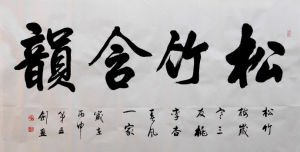 松竹含韻
松竹
松歲
寒三
友桃
李杏
春風
一家
歲在
丙申